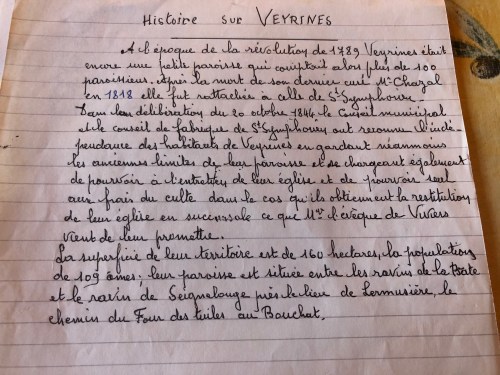 Histoire sur VEYRINES
A l'époque de la révolution de 1789 Veyrines était
encore une petite paroisse qui comptait alors plus de 100
paroissiens. Après la mort de son dernier curé Mr Chazal
en 1818 elle fut rattachée à celle de St Symphorien.
Dans leur délibération du 20 octobre 1844 le Conseil municipal
et le conseil de fabrique de St Symphorien ont reconnu l'indé-
pendance des habitants de Veyrines en gardant néanmoins
les anciennes limites de leur paroisse et se chargeant également
de pourvoir à l'entretien de leur église et de pouvoir seul
aux frais du culte dans le cas qu'ils obtiennent la restitution
de leur église en succursale ce que Mgr l'évêque de Viviers
vient de leur promettre.
La superficie de leur territoire est de 160 hectares, la population
de 109 âmes; leur paroisse est située entre les ravins de la
et le ravin de Seignelouge près le lieu de Lermusière, le
chemin du Four des tuiles au Bouchat.